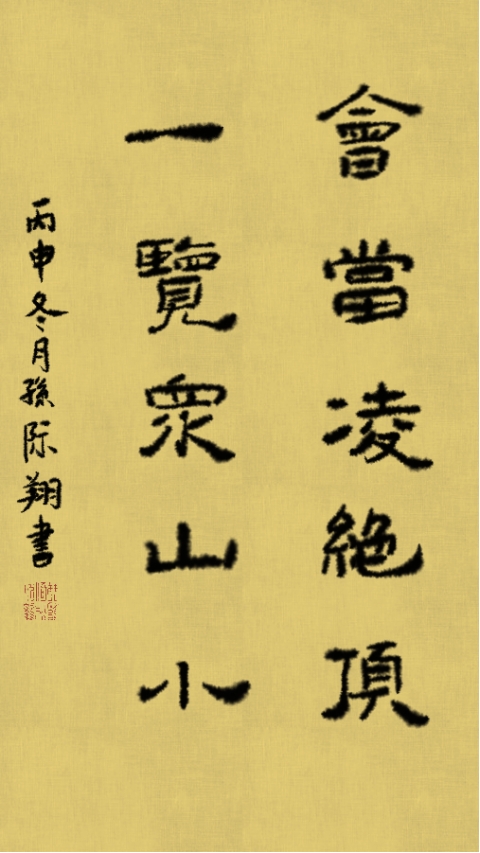 會當凌絶頂
一覽眾山小
丙申冬月孫际翔書